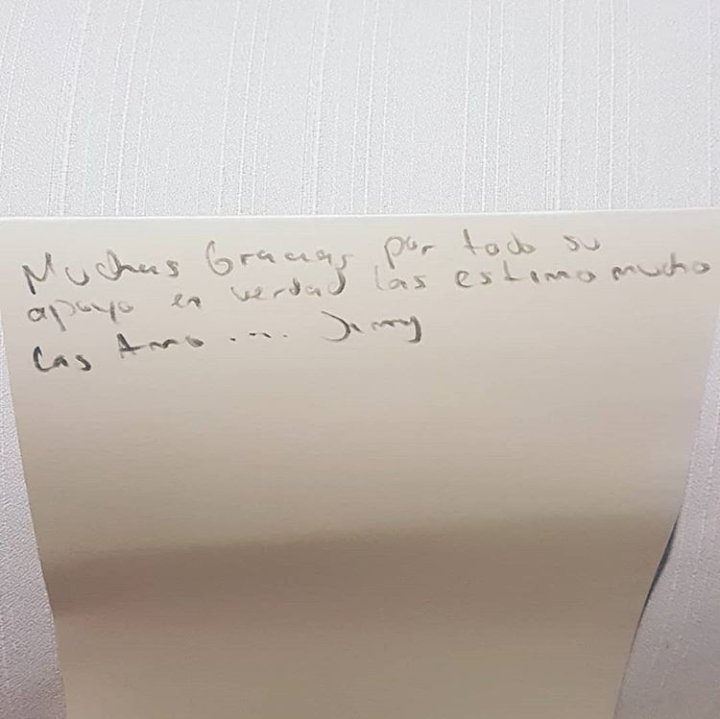 Muchas Gracias por todo su
apoyo en verdad las estimo mucho
las Amo .... Jimmy